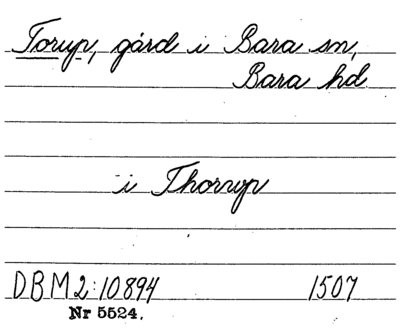 Torup, gård i Bara sn,
Bara hd.
i Thorrvp
DBM 2:10894 1507
Nr 5524.